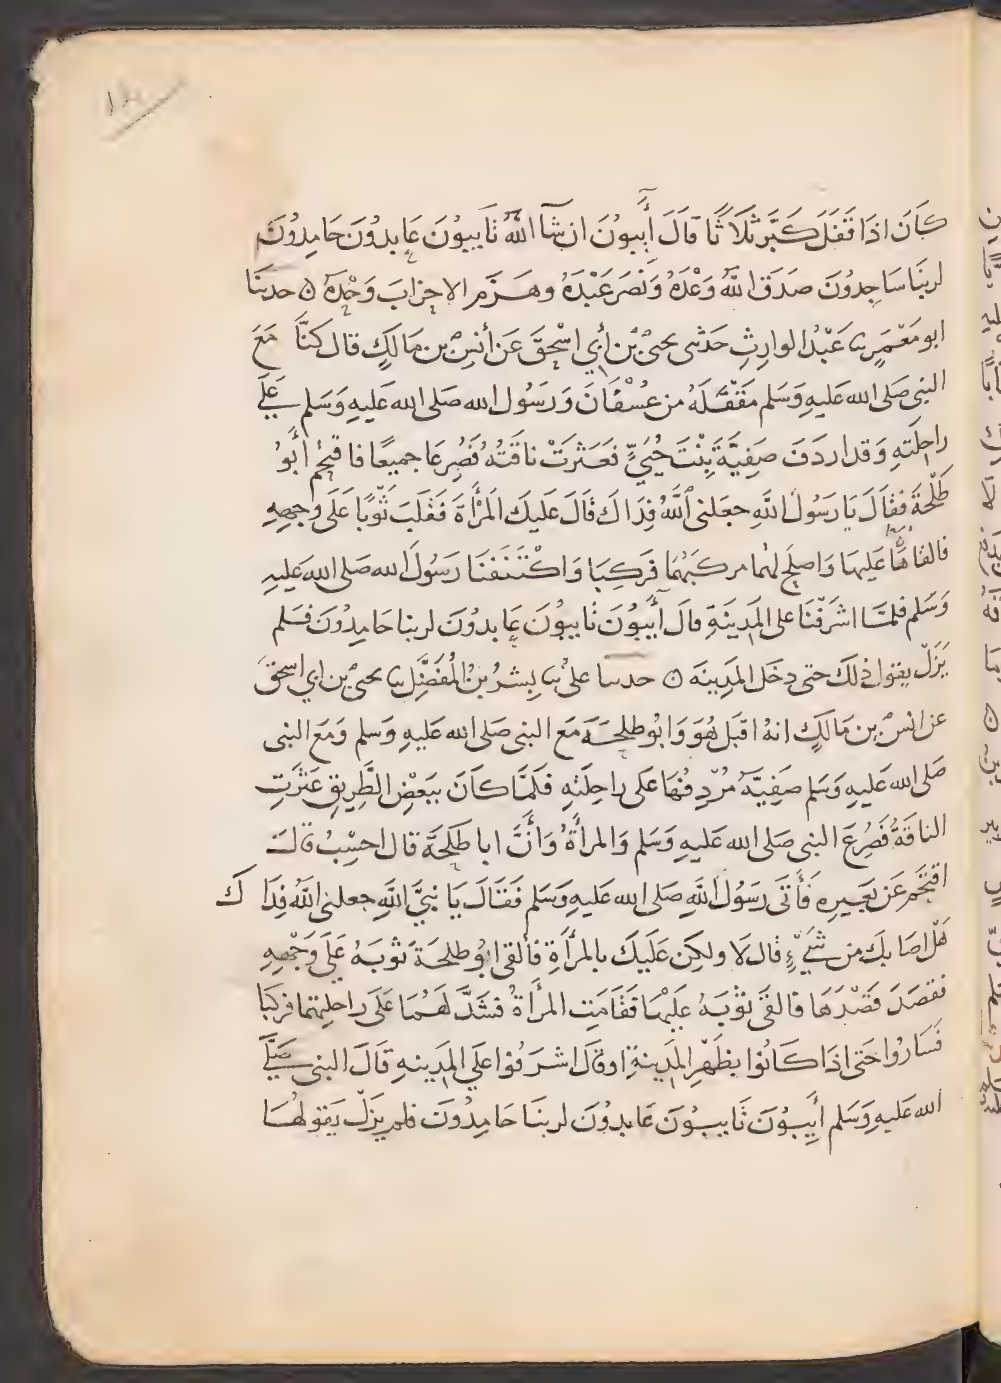 كَانَ اذَا قَفَلَ كَبَّرَ ثَلَاثًا قَالَ آيِبُونَ ان شَآ اللهُ تَايِبُونَ عَابِدُونَ حَامِدُونَ
لربنَا سَاجِدُونَ صَدَقَ اللهُ وَعْدَهُ وَنَصَرَ عَبْدَهُ وهَزَمَ الاحزَابَ وَحْدَهُ ن حدثنَا
ابو مَعْمَرٍ ثنا عَبْدُ الوارِثِ حَدَثنى يحيىٰ بْن أَبِي اسْحٰقَ عَن أَنسِ بن مَالكٍ قال كنَّا مَعَ
النبى صَلى الله عَليهِ وَسَلم مَقْفَلَهُ من عُسْفَانَ وَرَسُول الله صَلى الله عَليهِ وَسَلم عَلَى
راحِلَتِهِ وَقد اردَفَ صَفِيَّةَ بِنْتَ حُيَيٍّ فَعَثرَتْ ناقَتُهُ فَصُرِعَا جميعًا فاقتحَم أَبُو
طَلْحَةَ فقَالَ يَا رَسُولَ اللَّهِ جعَلنى اللَّهُ فِدَاكَ قَالَ عَلَيكَ المَرْأَةَ فَقَلَبَ ثَوْبًا عَلَى وَجهِهِ
فالقاهَا عَليهَا وَاصلَحَ لهُما مركَبَهُمَا فَرَكِبَا وَاكْتَنَفنَا رَسُولَ الله صَلى الله عَليهِ
وَسَلم فلمَّا اشرَفْنَا على المَدينَةِ قالَ آيِبُونَ تَايِبُونَ عَابدُونَ لربنا حَامِدُونَ فَلم
يَزَلْ يقولُ ذلكَ حتى دخَل المَدِينَه ن حدثنا علىٌ ثنا بِشرُ بنُ المُفَضَّلِ ثنا يحيىٰ بن ابي اسحٰقَ
عن انسِ بن مَالكٍ انهُ اقبَل هُوَ وَابُو طلحَةَ مَعَ النبى صَلى الله عَليهِ وَسَلم وَمَعَ النبى
صَلى الله عَليهِ وَسَلم صَفِيَّةُ مُرْدِفُهَا عَلى راحِلَتِهِ فَلمَّا كَانَ ببَعْضِ الطَّرِيقِ عَثرَتِ
الناقَةُ فَصُرِعَ النبى صَلى الله عَليهِ وَسَلم وَالمرأَةُ وَأَنَّ ابا طَلحَةَ قال احسِبُ قالَ
اقتحَمَ عَن بَعِيرِهِ فَأَتَى رَسُولَ اللَّهِ صَلى الله عَليهِ وَسَلم فقَالَ يَا نبِيَّ اللَّهِ جعلنى اللهُ فِدَاكَ
هَلْ اصَابكَ من شَيْءٍ قال لَا ولكِن عَلَيكَ بالمرأَةِ فأَلقى ابُو طلحَةَ ثَوْبَهُ عَلَى وَجْهِهِ
فقصَدَ قَصْدَهَا فالقَى ثوْبَهُ عَلَيْهَا فقَامَتِ المرأَةُ فشَدَّ لَهُمَا عَلَى راحلتِهما فركبَا
فَسَارُوا حَتى اذَا كَانُوا بظَهْرِ المَدِينةِ او قَالَ اشرَفُوا عَلَى المَدِينهِ قَالَ النبى صَلَّى
الله عَليهِ وَسَلم آيِبُونَ تَايبُونَ عَابدُونَ لربنَا حَامِدُونَ فلم يَزَلْ يَقولهَا